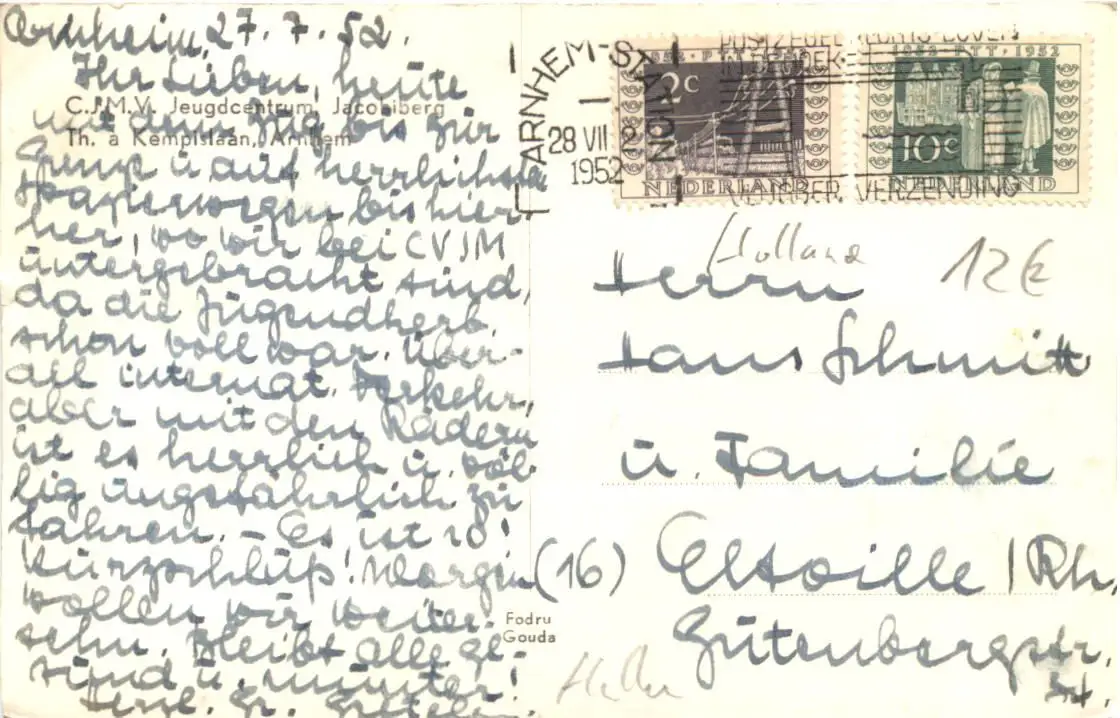 Arnheim, 27.7.52.
Ihr Lieben, heute
C.J.M.V. Jeugdcentrum, Jacobiberg
mit dem Zug bis zur
Th. à Kempislaan, Arnhem
Grenze u. auf herrlichsten
Spazierwegen bis hier-
her, wo wir bei CVJM
untergebracht sind,
da die Jugendherb.
schon voll war. Über-
all internat. Verkehr,
aber mit den Rädern
ist es herrlich u. völ-
lig ungefährlich zu
fahren. – Es ist 10!
Kurzschluß! Morgen
wollen wir weiter-
sehn. Bleibt alle ge-
sund u. munter!
Herzl. Gr.
ARNHEM-STATION
28 VII 2
1952
POSTZEGEL
IN
VERZENDING
1952 · PTT · 1952
2c
NEDERLAND
1952 · PTT · 1952
10c
NEDERLAND
Holland
12€
Herrn
Hans Schmitt
u. Familie
(16) Eltville / Rh.
Gutenbergstr.
Fodru
Gouda